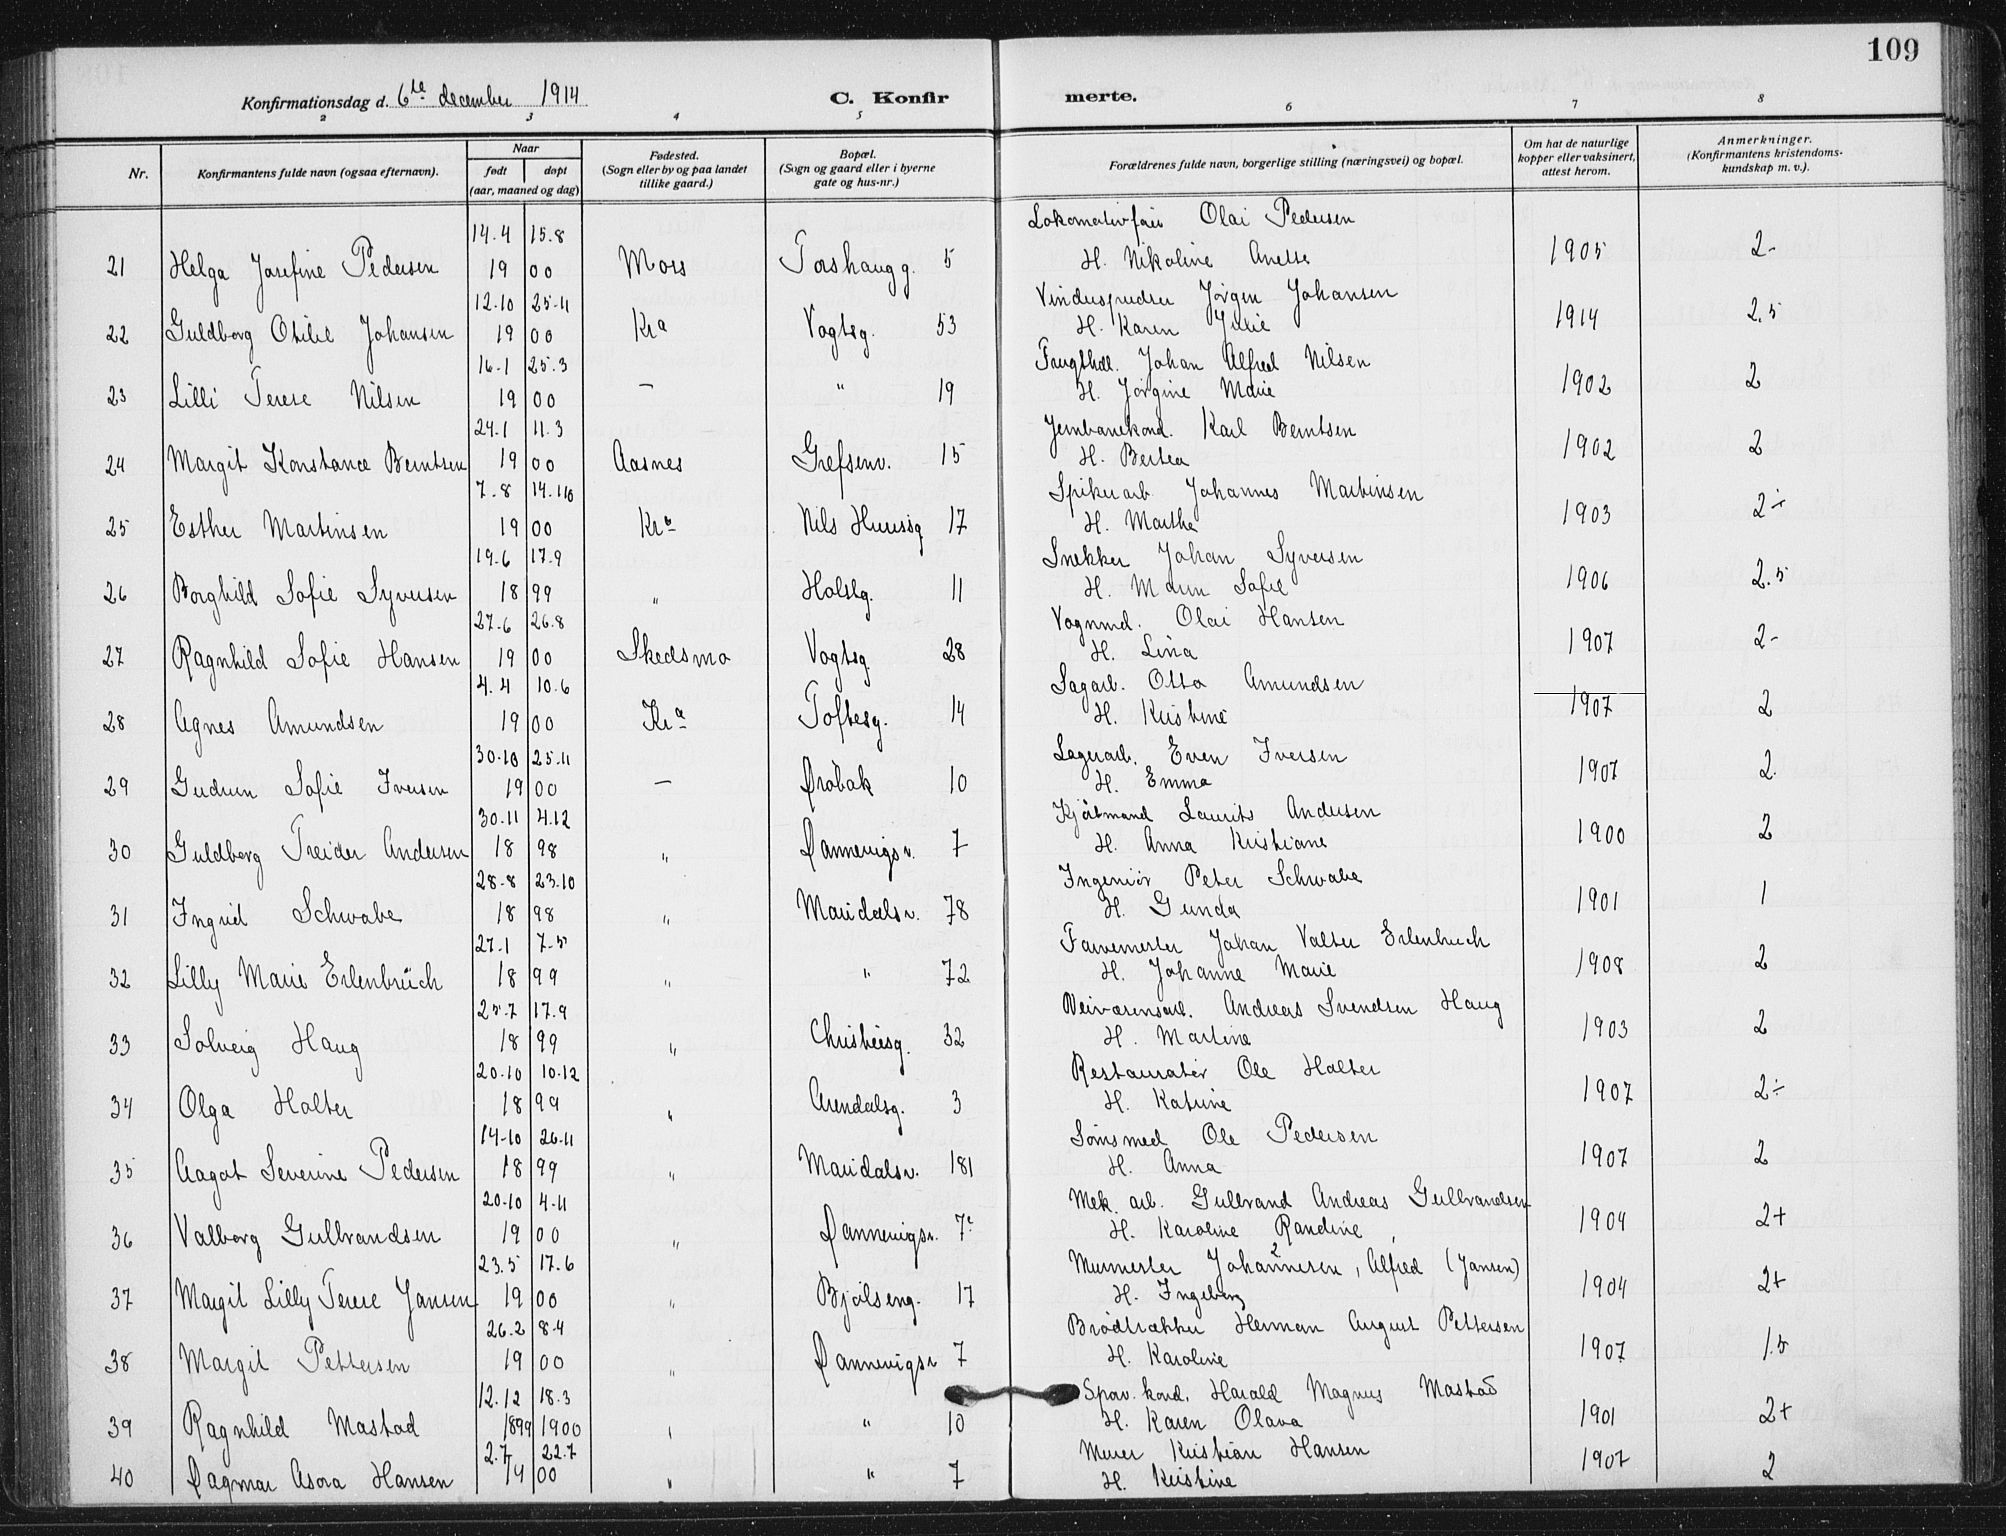 109
Konfirmationsdag d. 6te december 1914
C. Konfirmerte.
2 3 4 5 6 7 8
Nr.
Konfirmantens fulde navn (ogsaa efternavn).
Naar
født døpt
(aar, maaned og dag)
Fødested.
(Sogn eller by og paa landet
tillike gaard.)
Bopæl.
(Sogn og gaard eller i byerne
gate og hus-nr.)
Forældrenes fulde navn, borgerlige stilling (næringsvei) og bopæl.
Om hat de naturlige
kopper eller vaksinert,
attest herom.
Anmerkninger.
(Konfirmantens kristendoms-
kundskap m. v.).
14.4 15.8 Olai Pedersen
21 Helga Josefine Pedersen 19 00 Mors Torshaugg. 5 H. Nikoline Anette 1905 2-
12.10 25.11 Vinduspudser Jørgen Johansen
22 Guldborg Otilie Johansen 19 00 Kra Vogtsg. 53 H. Karen 1914 2.5
16.1 25.3 Johan Alfred Nilsen
23 Lilli Terese Nilsen 19 00 — " 19 H. Jørgine Marie 1902 2
24.1 11.3 Jernbanekond. Karl Berntsen
24 Margit Konstance Berntsen 19 00 Aasnes Grefsenv. 15 H. Bertea 1902 2
7-8 14.10 Spikerarb. Johannes Martinsen
25 Esther Martinsen 19 00 Kra Nils Huussg 17 H. Marthe 1903 2÷
19.6 17.9 Snekker Johan Syversen
26 Borghild Sofie Syversen 18 99 " Holstg. 11 H. Sofie 1906 2.5
27.6 26.8 Vognmd. Olai Hansen
27 Ragnhild Sofie Hansen 19 00 Skedsmo Vogtsg. 28 H. Lina 1907 2-
4.4 10.6 Sagarb. Otto Amundsen
28 Agnes Amundsen 19 00 Kra Toftesg. 14 H. Kristine 1907 2
30.10 25.11 Lagerarb. Even Iversen
29 Gudrun Sofie Iversen 19 00 — Drøbak 10 H. Emma 1907 2
30.11 4.12 Kjøbmand Laurits Andersen
30 Guldborg Treider Andersen 18 98 " Dannevigsv. 7 H. Anna Kristiane 1900 2
28-8 23.10 Ingeniør Peter Schwabe
31 Ingrid Schwabe 18 98 " Maridalsv. 78 H. Gunda 1901 1
27.1 7-5 Farvemester Johan Valter Erlenbruch
32 Lilly Marie Erlenbrüch 18 99 " " 72 H. Johanne Marie 1908 2
25.7 17.9 Veivæsensarb. Andreas Svendsen Haug
33 Solveig Haug 18 99 " Christiesg. 32 H. Martine 1903 2
20.10 10.12 Restauratør Ole Halter
34 Olga Halter 18 99 " Arendalsg. 3 H. Katrine 1907 2÷
14-10 26.11 Ole Pedersen
35 Aagot Severine Pedersen 18 99 " Maridalsv. 181 H. Anna 1907 2
20.10 4-11 Mek. arb. Gulbrand Andreas Gulbrandsen
36 Valborg Gulbrandsen 19 00 " Dannevigsv. 7c H. Karoline Randine 1904 2+
23.5 17.6 Murmester Johannesen, Alfred (Jansen)
37 Margit Lilly Terese Jansen 19 00 " Bjølseng. 17 H. Ingeborg 1904 2+
26.2 8.4 Brødtrækker Herman August Pettersen
38 Margit Pettersen 19 00 " Dannevigsv 7 H. Karoline 1907 1.5
12.12 18.3 Sporv. kond. Harald Magnus Mastad
39 Ragnhild Mastad 1899 1900 " " 10 H. Karen Olava 1901 2+
2.7 22.7 Murer Kristian Hansen
40 Dagmar Asora Hansen 19 00 " " 7 H. Kristine 1907 2